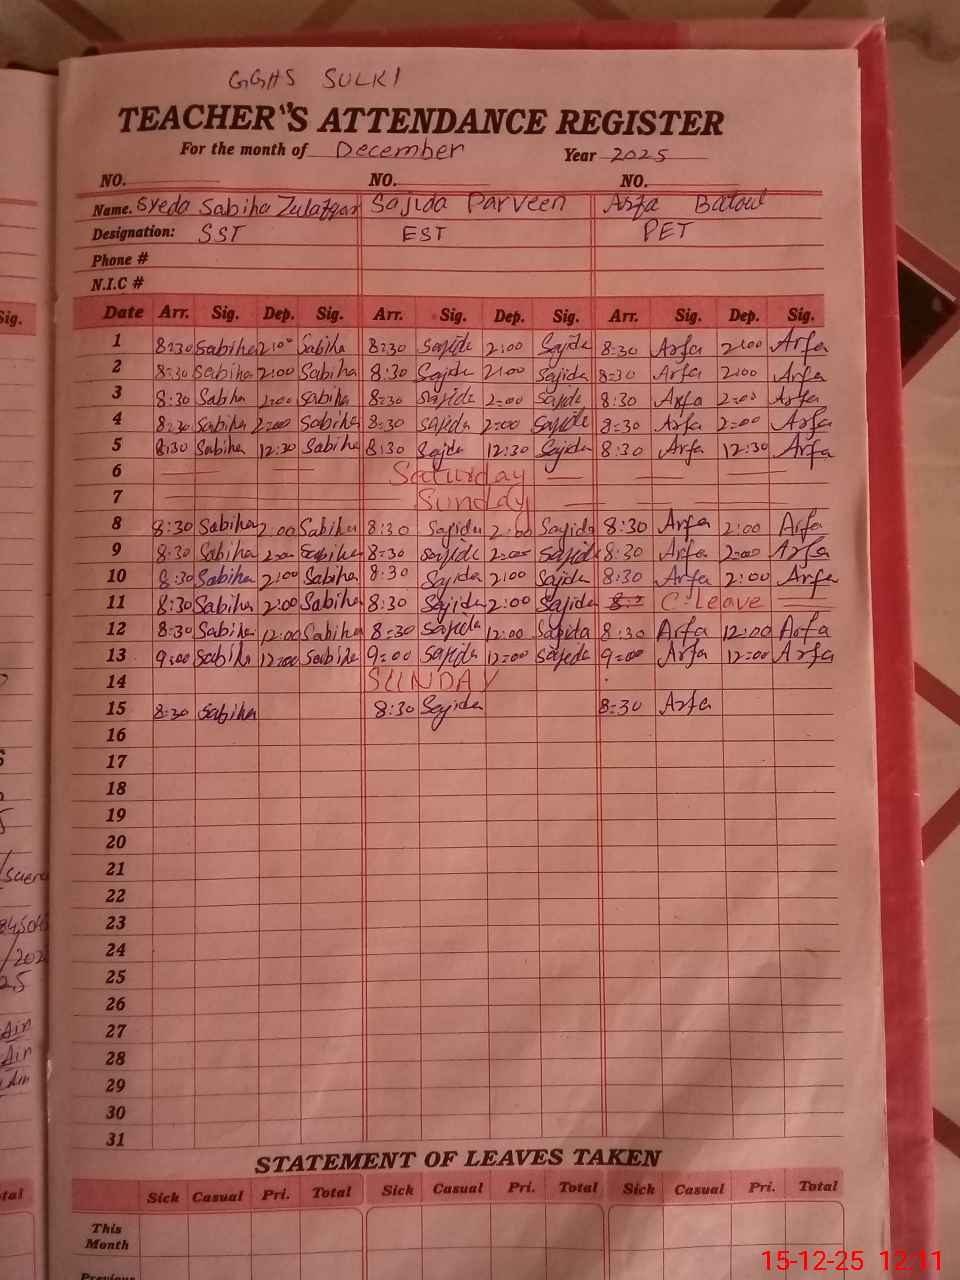 GGHS SULKI
TEACHER'S ATTENDANCE REGISTER
For the month of December Year 2025
NO. NO. NO.
Name. Syeda Sabiha Zulafqar Sajida Parveen Arfa Batoul
Designation: SST EST PET
Phone #
N.I.C #
Sig. Date Arr. Sig. Dep. Sig. Arr. Sig. Dep. Sig. Arr. Sig. Dep. Sig.
1 8:30 Sabiha 2:00 Sabiha 8:30 Sajida 2:00 Sajida 8:30 Arfa 2:00 Arfa
2 8:30 Sabiha 2:00 Sabiha 8:30 Sajida 2:00 Sajida 8:30 Arfa 2:00 Arfa
3 8:30 Sabiha 2:00 Sabiha 8:30 Sajida 2:00 Sajida 8:30 Arfa 2:00 Arfa
4 8:30 Sabiha 2:00 Sabiha 8:30 Sajida 2:00 Sajida 8:30 Arfa 2:00 Arfa
5 8:30 Sabiha 12:30 Sabiha 8:30 Sajida 12:30 Sajida 8:30 Arfa 12:30 Arfa
6 Saturday
7 Sunday
8 8:30 Sabiha 2:00 Sabiha 8:30 Sajida 2:00 Sajida 8:30 Arfa 2:00 Arfa
9 8:30 Sabiha 2:00 Sabiha 8:30 Sajida 2:00 Sajida 8:30 Arfa 2:00 Arfa
10 8:30 Sabiha 2:00 Sabiha 8:30 Sajida 2:00 Sajida 8:30 Arfa 2:00 Arfa
11 8:30 Sabiha 2:00 Sabiha 8:30 Sajida 2:00 Sajida C-Leave
12 8:30 Sabiha 12:00 Sabiha 8:30 Sajida 12:00 Sajida 8:30 Arfa 12:00 Arfa
13 9:00 Sabiha 12:00 Sabiha 9:00 Sajida 12:00 Sajida 9:00 Arfa 12:00 Arfa
14 SUNDAY
15 8:30 Sabiha 8:30 Sajida 8:30 Arfa
16
17
18
19
20
21
22
23
24
25
26
27
28
29
30
31
STATEMENT OF LEAVES TAKEN
Sick Casual Pri. Total Sick Casual Pri. Total Sick Casual Pri. Total
This Month
Previous
15-12-25 12:11